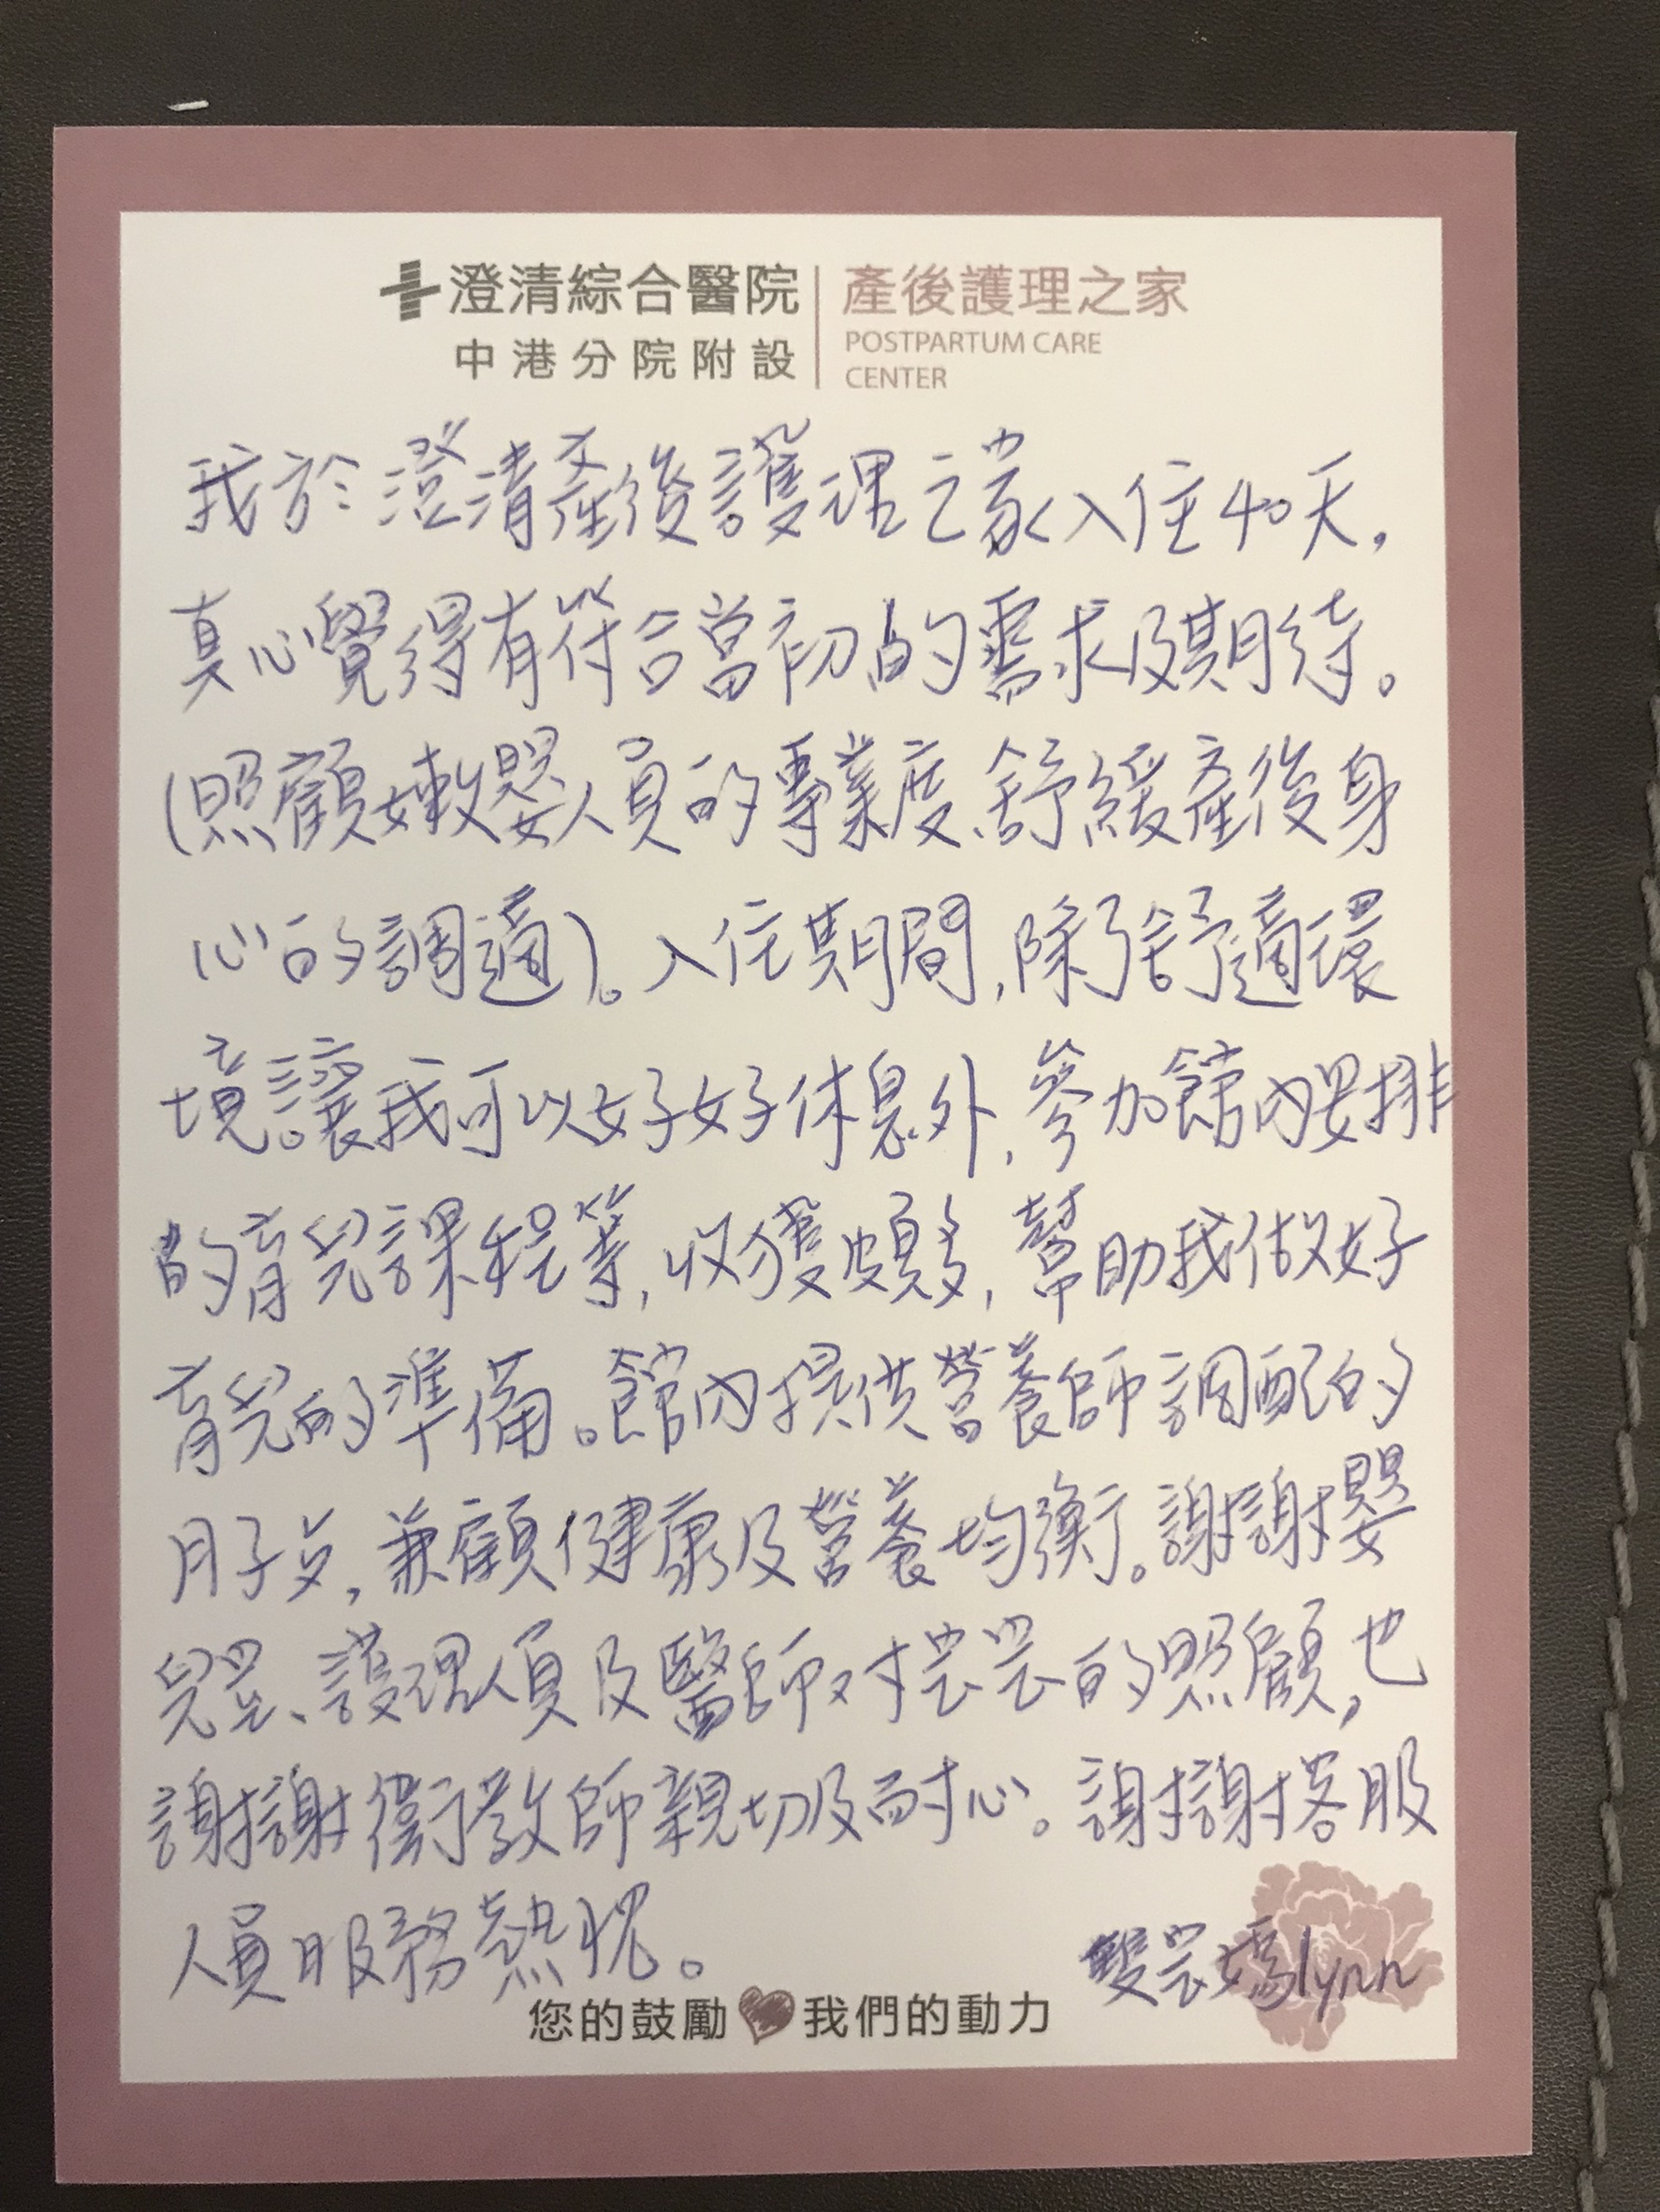 澄清綜合醫院
中港分院附設
產後護理之家
POSTPARTUM CARE
CENTER
我於澄清產後護理之家入住40天,
真心覺得有符合當初的需求及期待。
(照顧嫩嬰人員的專業度、舒緩產後身
心的調適)。入住期間,除了舒適環
境讓我可以好好休息外,參加館內安排
的育兒課程等,收獲頗多,幫助我做好
育兒的準備。館內提供營養師調配的
月子餐,兼顧健康及營養均衡。謝謝嬰
兒室、護理人員及醫師對芸芸的照顧,也
謝謝衛教師親切及耐心。謝謝客服
人員服務熱忱。
雙芸媽lynn
您的鼓勵 我們的動力